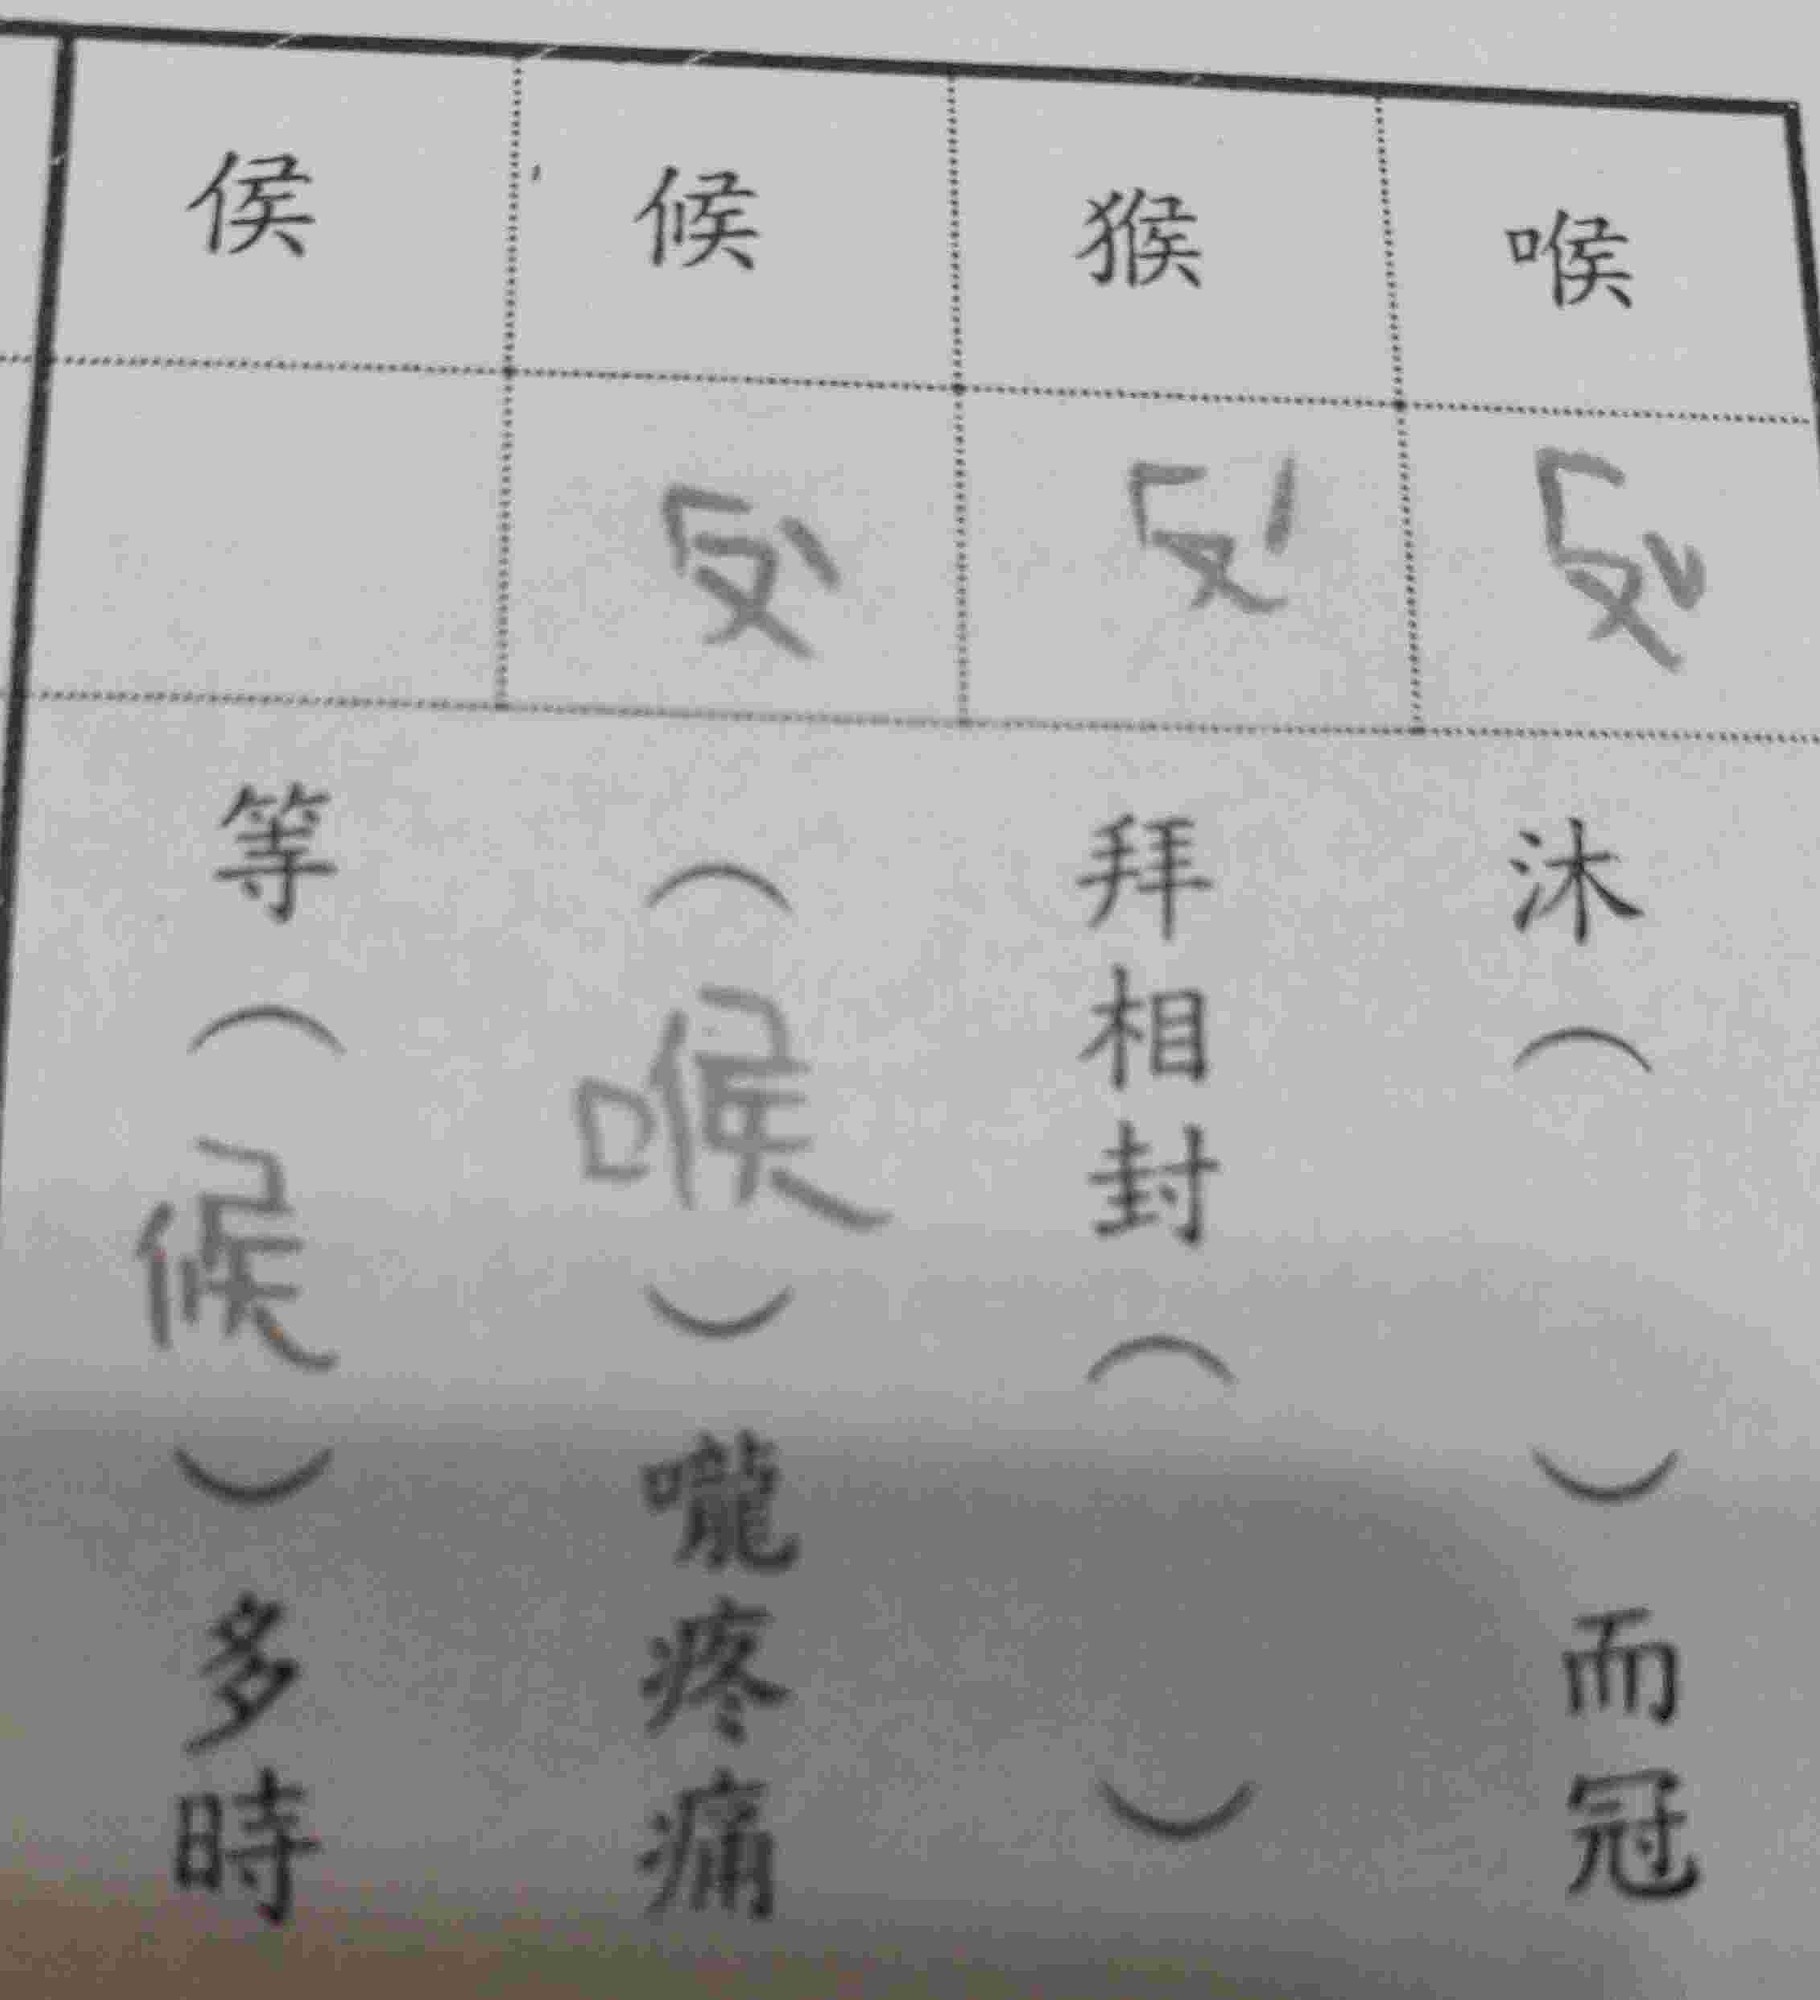 喉 猴 候 侯
ㄏㄡˇ ㄏㄡˊ ㄏㄡˋ
沐（ ）而冠
拜相封（ ）
（喉）嚨疼痛
等（候）多時